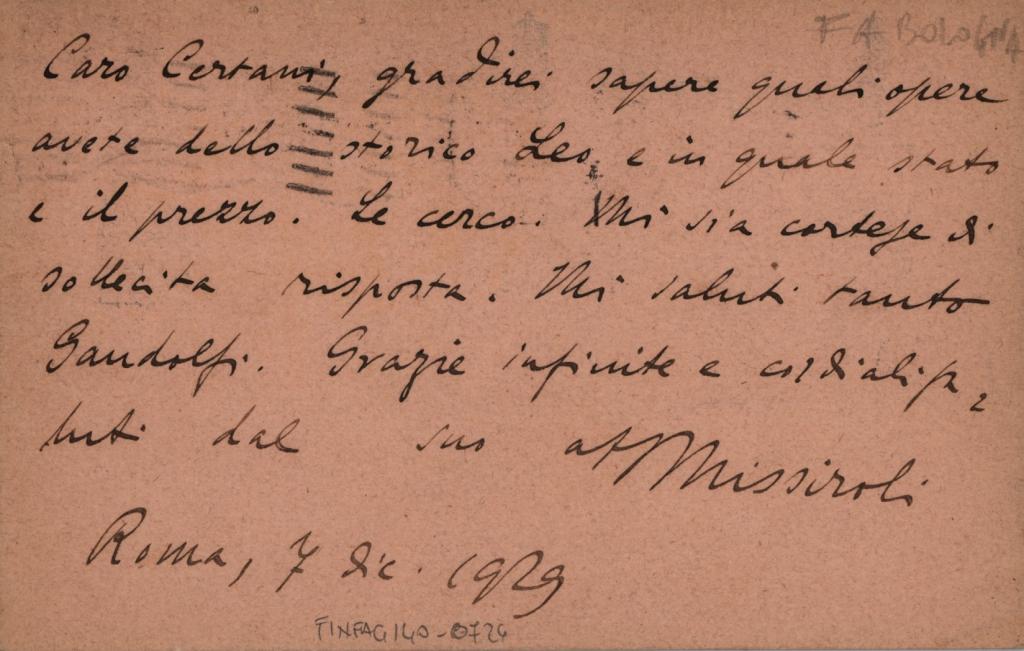 FA BOLOGNA
Caro Certani, gradirei sapere quali opere
avete dello storico Leo, e in quale stato
e il prezzo. Le cerco. Mi sia cortese di
sollecita risposta. Mi saluti tanto
Gandolfi. Grazie infinite e cordiali sa-
luti dal suo aff Missiroli
Roma, 7 dic. 1929
FINFAG140-0724